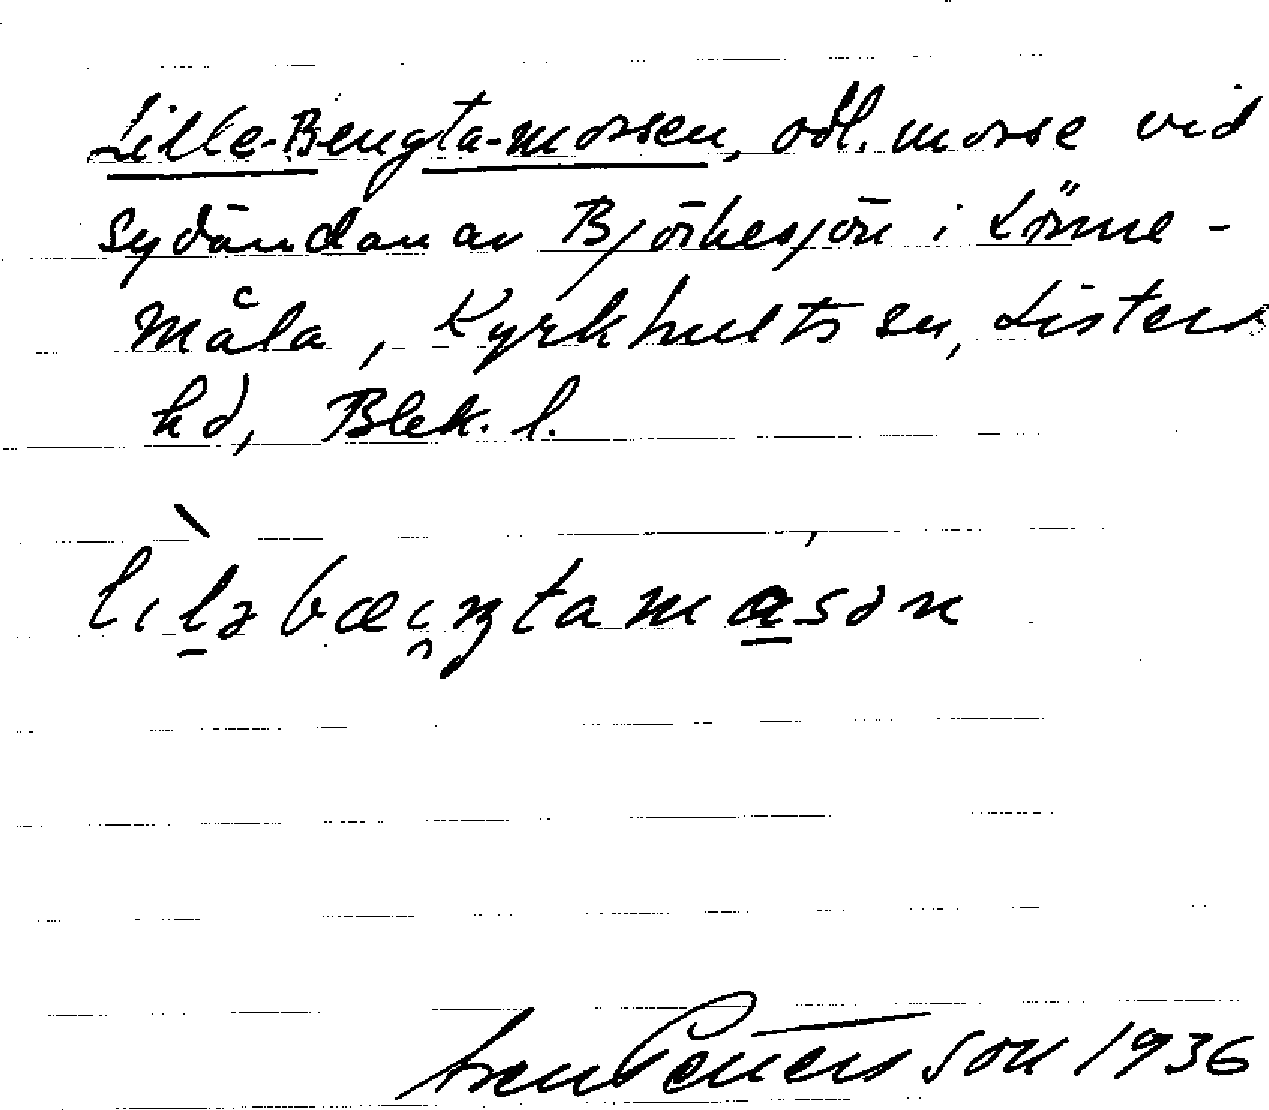 Lille-Bengta-mossen, odl. mosse vid
sydändan av Björkesjön i Lönne-
måla, Kyrkhults sn, Listers
hd, Blek. l.
Pettersson 1936